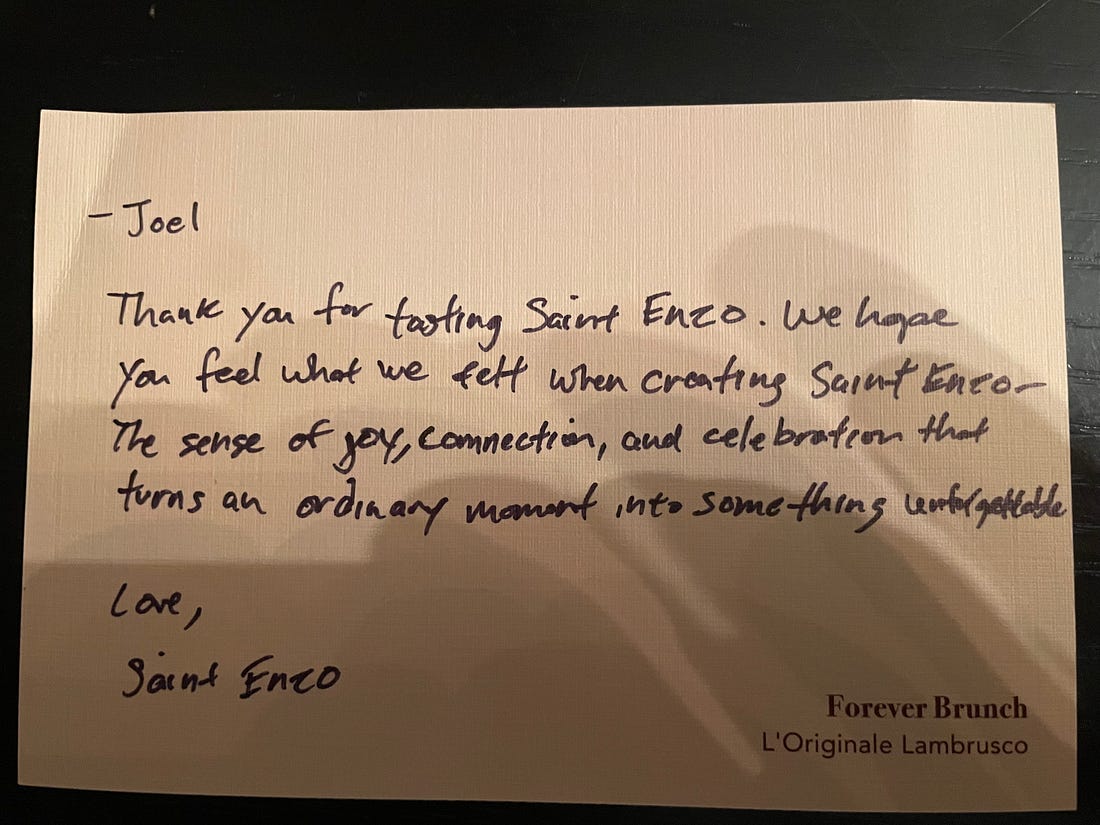 - Joel
Thank you for tasting Saint Enzo. We hope
you feel what we felt when creating Saint Enzo-
The sense of joy, connection, and celebration that
turns an ordinary moment into something unforgettable
Love,
Saint Enzo
Forever Brunch
L'Originale Lambrusco